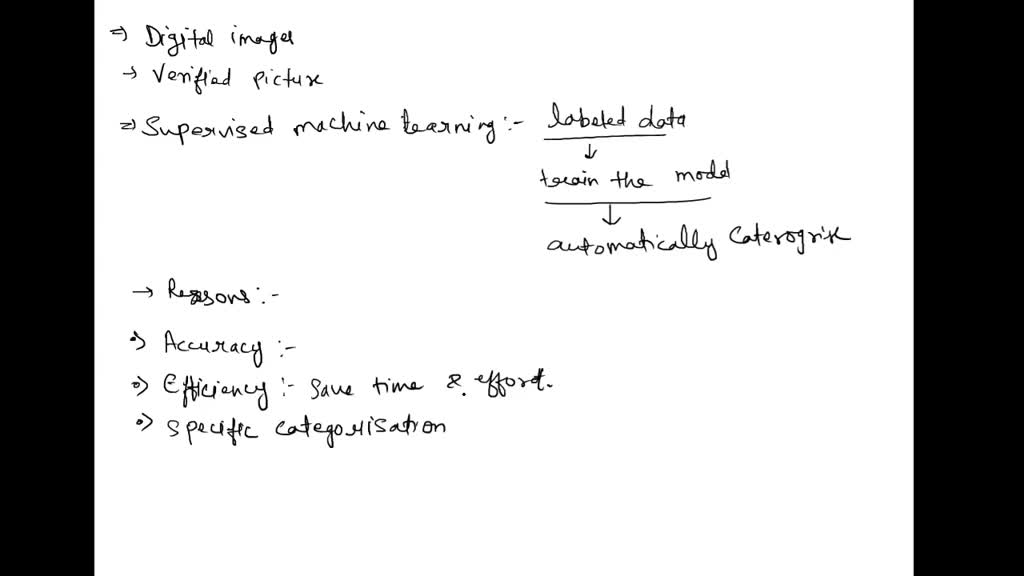 ⇒ Digital images
→ Verified picture
⇒ Supervised machine learning :- labeled data
↓
train the model
↓
automatically Caterogrise
→ Reasons :-
•) Accuracy :-
•) Efficiency :- Save time & effort.
•) Specific categorisation